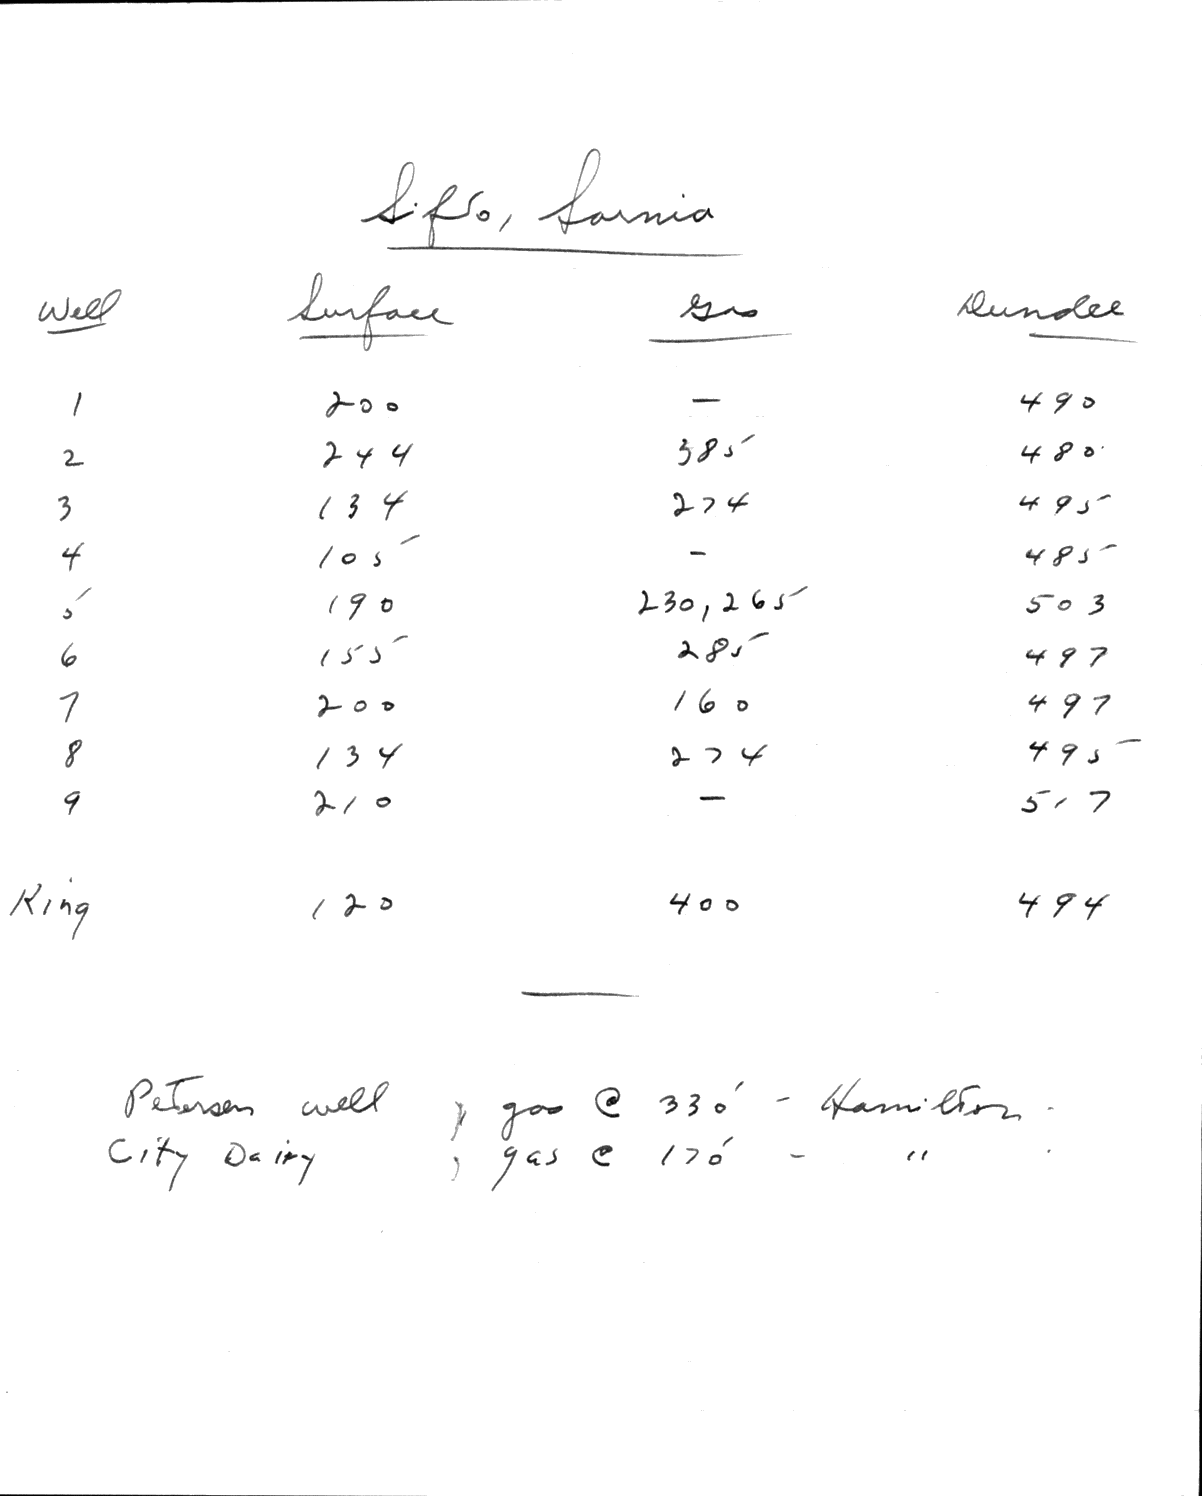 Sifto, Sarnia
Well Surface Gas Dundee
1 200 — 490
2 244 385 480
3 134 274 495
4 105 - 485
5 190 230, 265 503
6 155 285 497
7 200 160 497
8 134 274 495
9 210 — 517
King 120 400 494
Petersen well ; gas @ 330' - Hamilton.
City Dairy ; gas @ 170' - " .